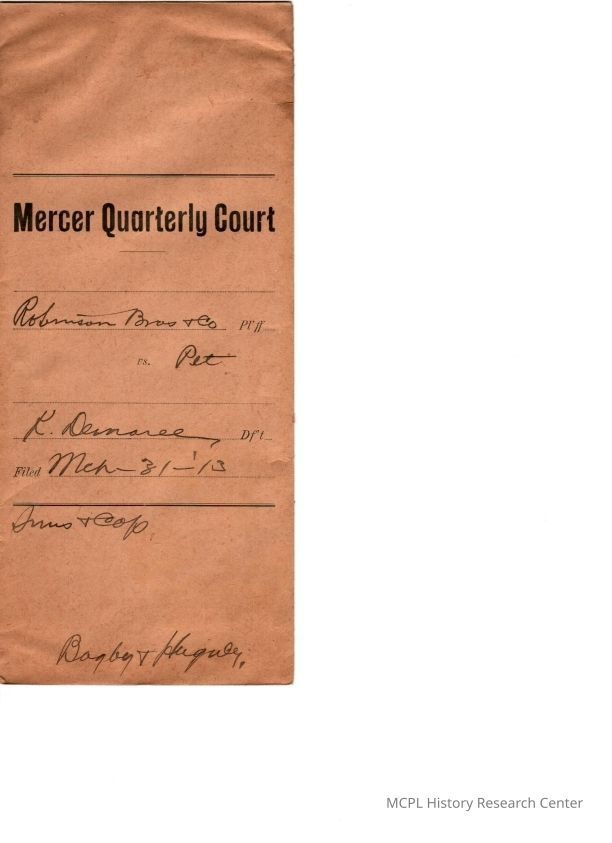 Mercer Quarterly Court
Robinson Bros & Co Pl'ff
vs. Pet
K. Demaree, Df't
Filed Mch – 31 – '13
Sums & Cop,
Bagby & Huguely.
MCPL History Research Center